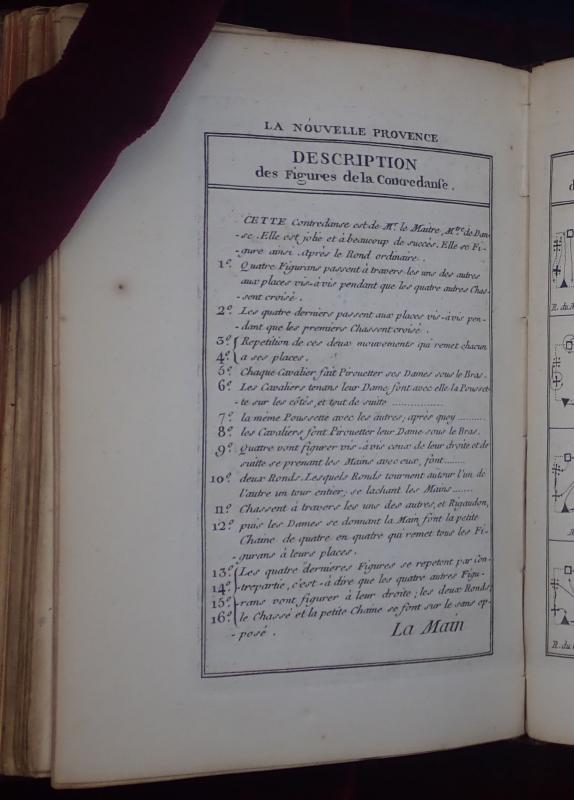 LA NOUVELLE PROVENCE
DESCRIPTION
des Figures de la Contredanse.
CETTE Contredanse est de Mr. le Maitre, Mtre. de Dan-
-se. Elle est jolie et à beaucoup de succès. Elle se Fi-
-gure ainsi. Après le Rond ordinaire.
1º. Quatre Figurans passent à travers les uns des autres
aux places vis-à-vis pendant que les quatre autres Chas-
-sent croisé.
2º. Les quatre derniers passent aux places vis-à-vis pen-
-dant que les premiers Chassent croisé.
3º. Repetition de ces deux mouvements qui remet chacun
4º. a ses places.
5º. Chaque Cavalier fait Pirouetter ses Dames sous le Bras.
6º. Les Cavaliers tenans leur Dame, font avec elle la Pousset-
-te sur les côtés, et tout de suite ..................
7º. la même Poussette avec les autres; après quoy ..........
8º. les Cavaliers font Pirouetter leur Dame sous le Bras.
9º. Quatre vont figurer vis-à-vis ceux de leur droite et de
suite se prenant les Mains avec eux, font ........
10º. deux Ronds. Lesquels Ronds tournent autour l'un de
l'autre un tour entier; se lachant les Mains .......
11º. Chassent à travers les uns des autres, et Rigaudon,
12º. puis les Dames se donnant la Main font la petite
Chaine de quatre en quatre qui remet tous les Fi-
-gurans à leurs places.
13º. Les quatre dernieres Figures se repetent par Con-
14º. -trepartie, c'est-à dire que les quatre autres Figu-
15º. -rans vont figurer à leur droite; les deux Ronds;
16º. le Chassé et la petite Chaine se font sur le sans op-
-posé.
La Main